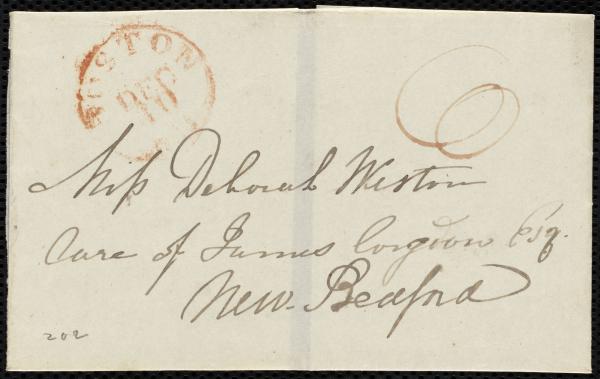 BOSTON
DEC
Miss Deborah Weston
Care of James Congdon Esq.
New-Bedford
202